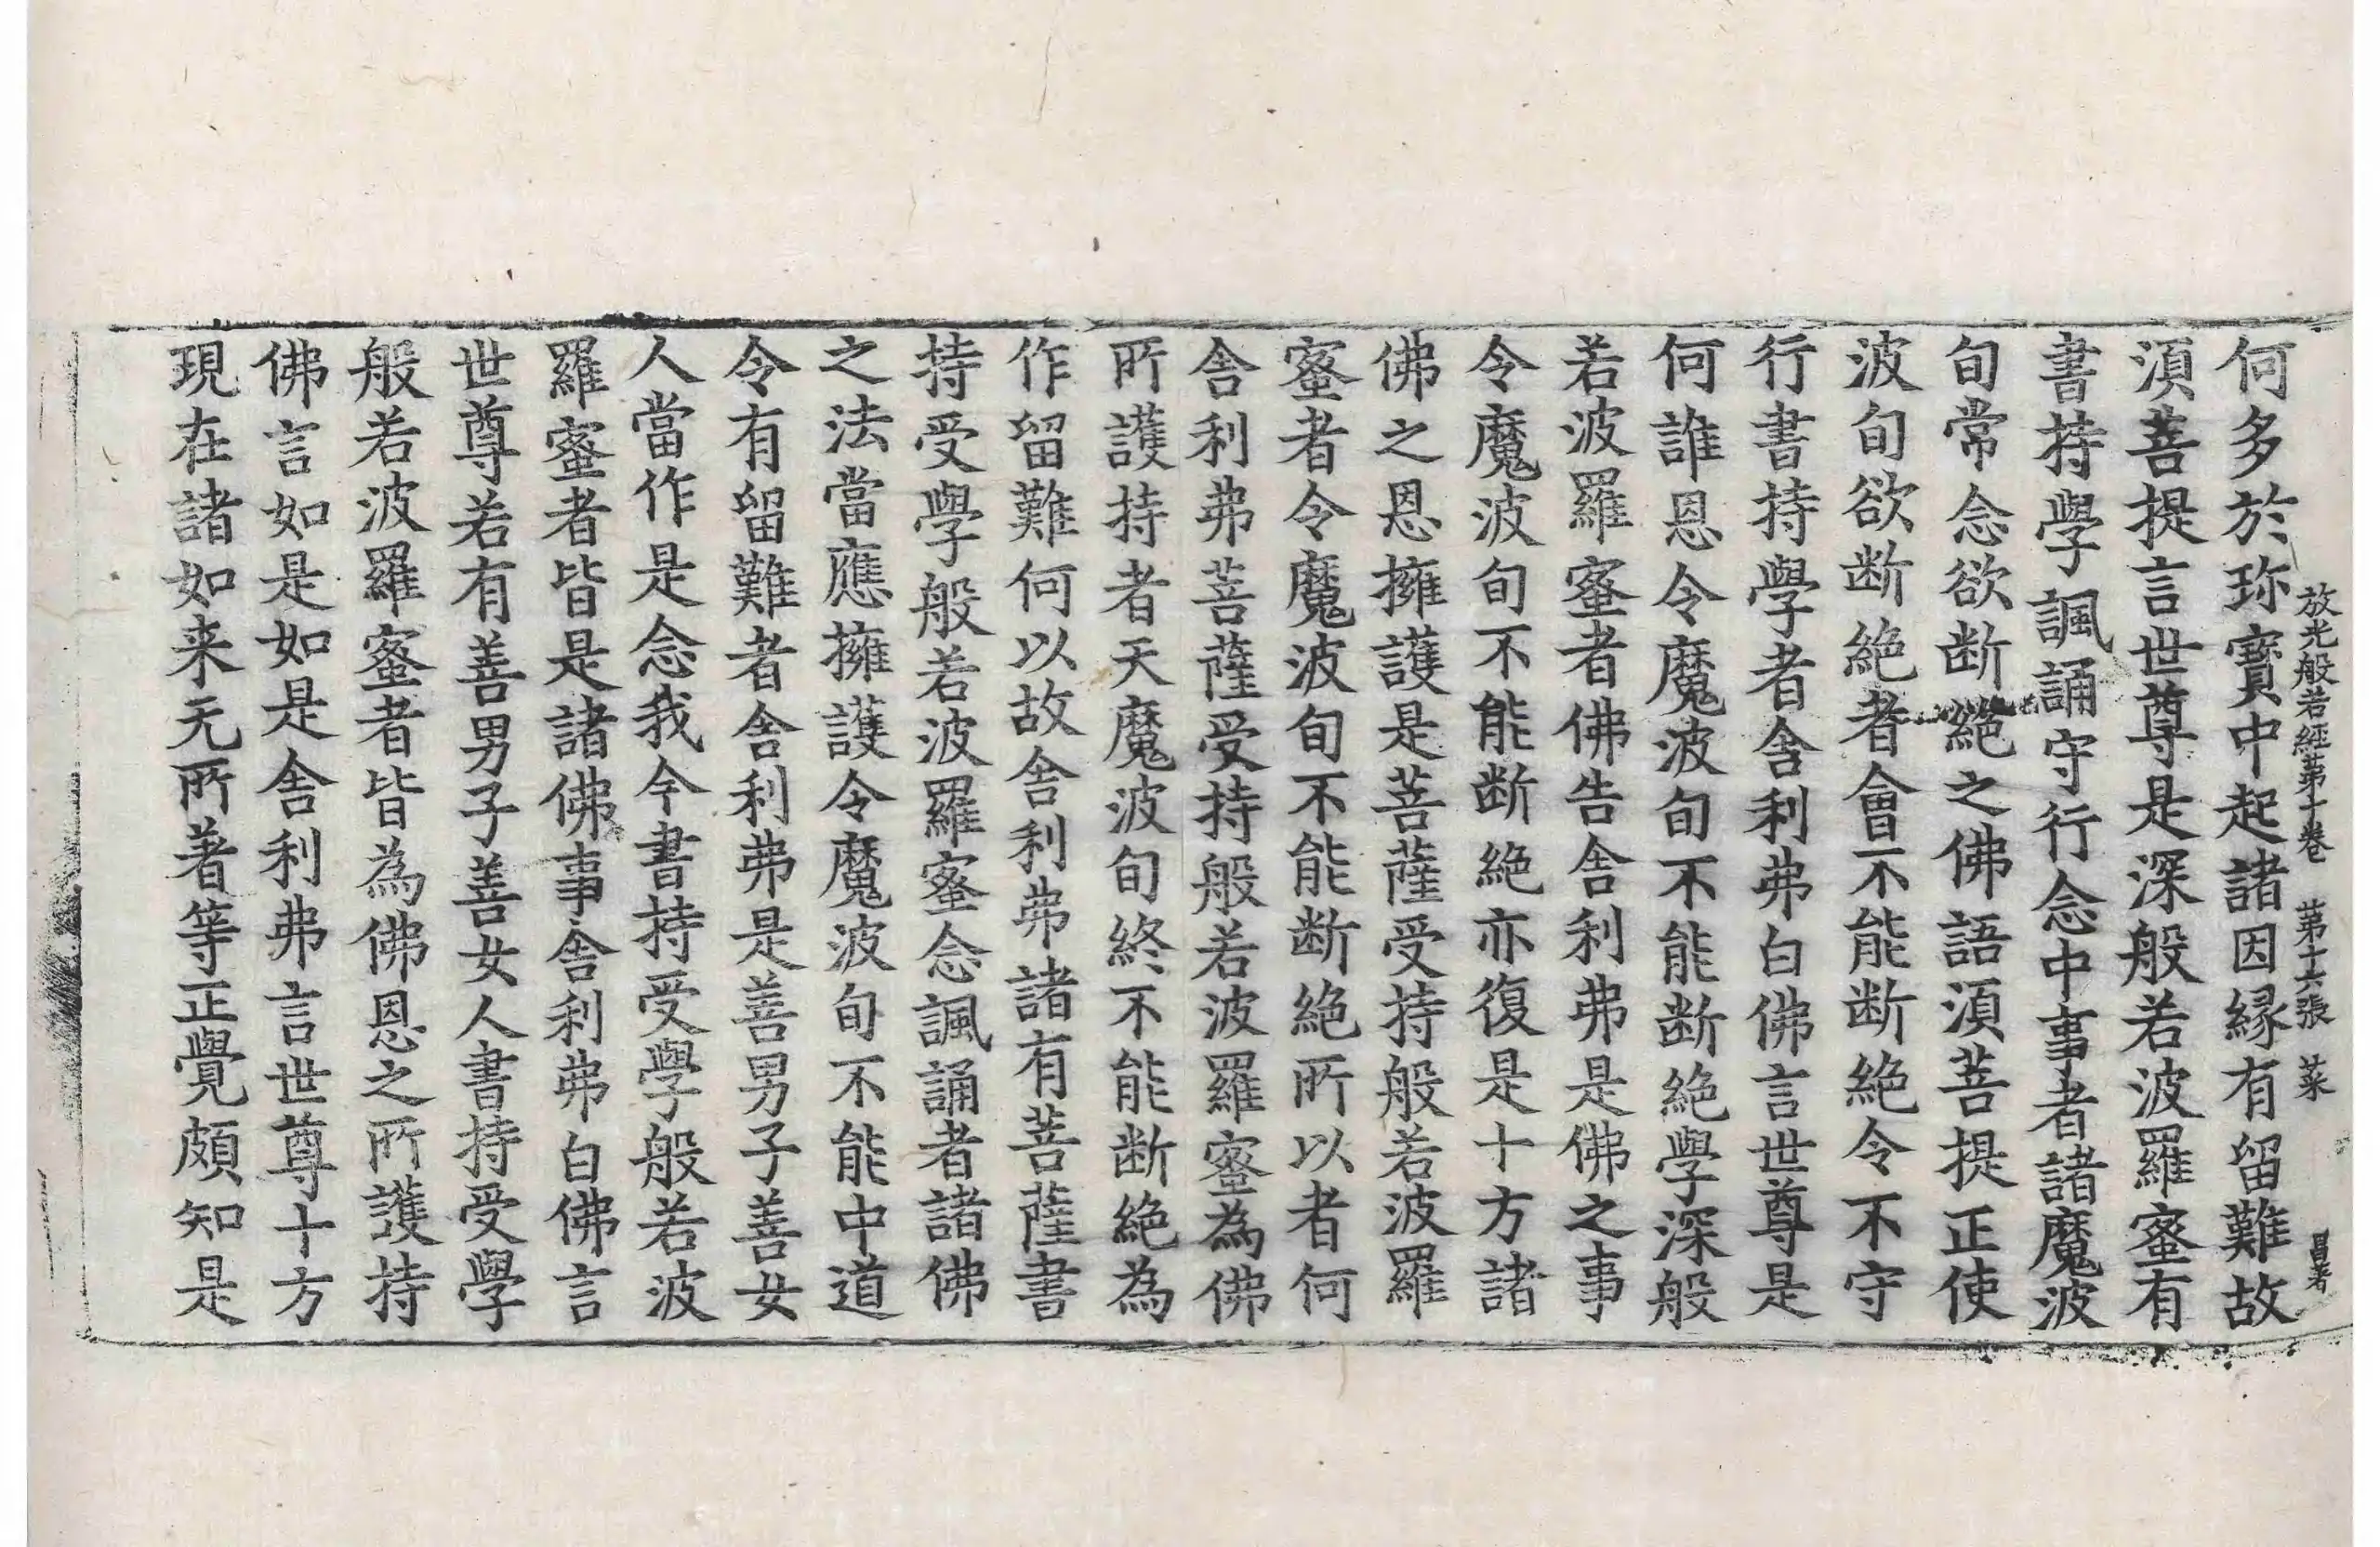 放光般若經第十卷　第十六張　菜　昌著
何多於珎寶中起諸因緣有留難故
須菩提言世尊是深般若波羅蜜有
書持學諷誦守行念中事者諸魔波
旬常念欲断絕之佛語須菩提正使
波旬欲断絕者會不能断絕令不守
行書持學者舍利弗白佛言世尊是
何誰恩令魔波旬不能断絕學深般
若波羅蜜者佛告舍利弗是佛之事
令魔波旬不能断絕亦復是十方諸
佛之恩擁護是菩薩受持般若波羅
蜜者令魔波旬不能断絕所以者何
舍利弗菩薩受持般若波羅蜜為佛
所護持者天魔波旬終不能断絕為
作留難何以故舍利弗諸有菩薩書
持受學般若波羅蜜念諷誦者諸佛
之法當應擁護令魔波旬不能中道
令有留難者舍利弗是善男子善女
人當作是念我今書持受學般若波
羅蜜者皆是諸佛事舍利弗白佛言
世尊若有善男子善女人書持受學
般若波羅蜜者皆為佛恩之所護持
佛言如是如是舍利弗言世尊十方
現在諸如来无所著等正覺頗知是